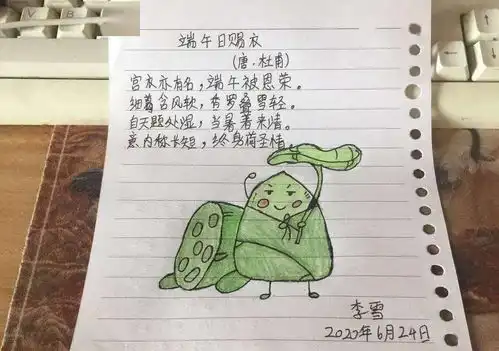 端午日赐衣
(唐·杜甫)
宫衣亦有名，端午被恩荣。
细葛含风软，香罗叠雪轻。
自天题处湿，当暑著来清。
意内称长短，终身荷圣情。
李雪
2020年6月24日